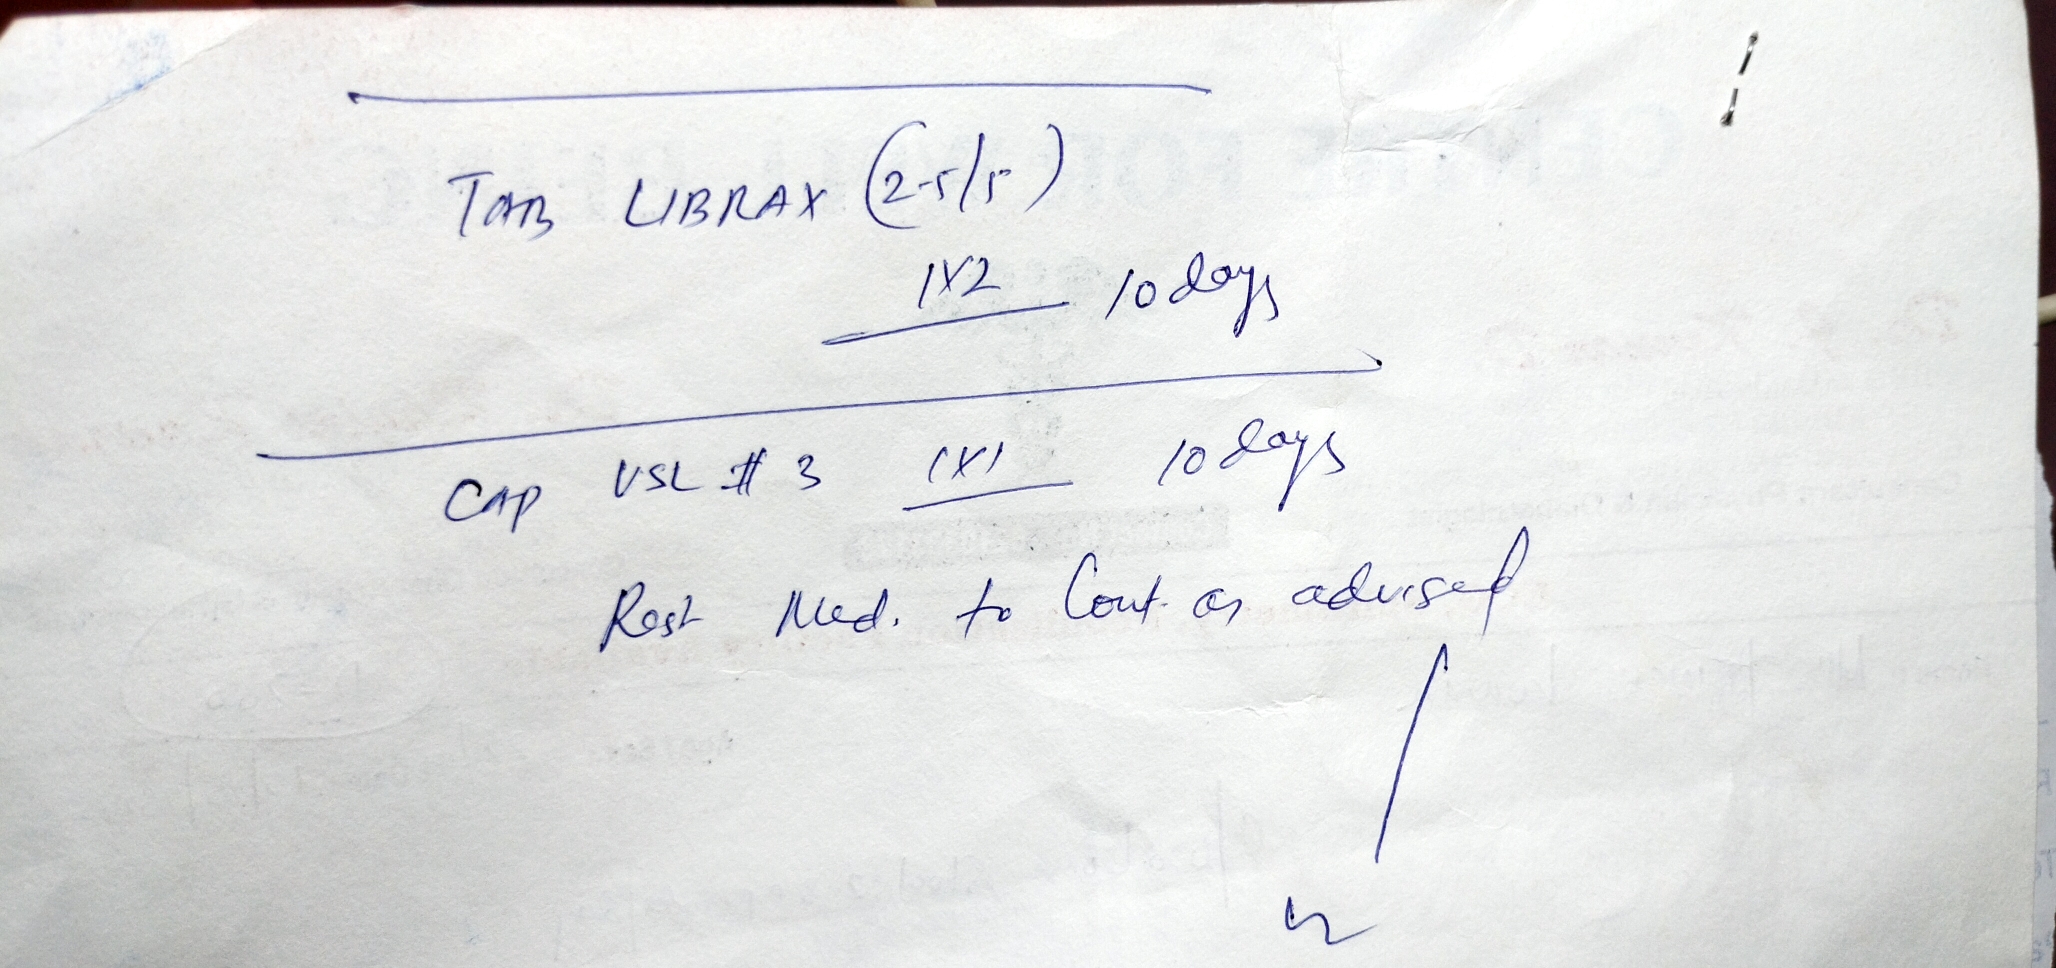 TAB LIBRAX (2.5/5)
1X2 10 days
CAP VSL # 3 1X1 10 days
Rest Med. to Cont. as advised